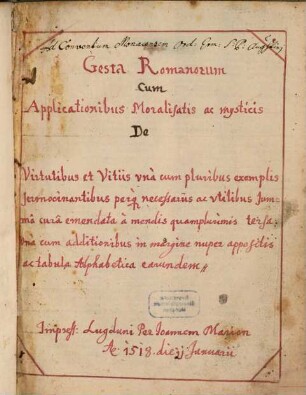 Ad Conventum Monacensem Ord. Erem. S. P. Augustini
Gesta Romanorum
Cum
Applicationibus Moralisatis ac mysticis
De
Virtutibus et Vitiis unà cum pluribus exemplis
necessariis ac utilibus sum-
mâ curâ emendata à mendis quamplurimis tersa.
una cum additionibus in margine nuper appositis
ac tabula Alphabetica earundem
Impress. Lugduni Per Joannem Marion
Aº. 1518. die Januarii